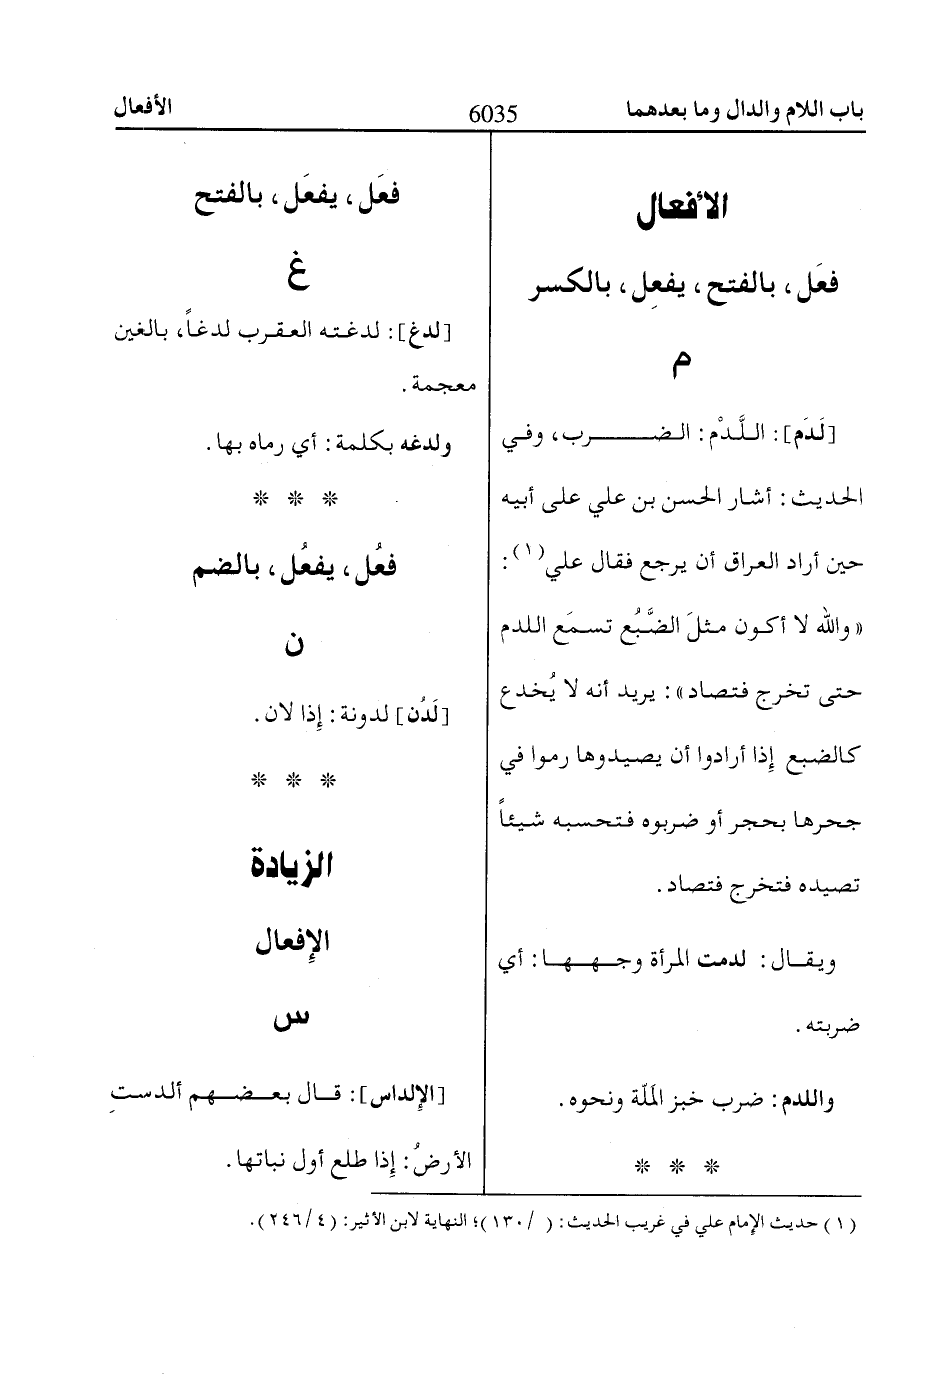 باب اللام والدال وما بعدهما
6035
الأفعال
الأفعال
فعَل، بالفتح، يفعِل، بالكسر
م
[لَدَم]: اللَّدْم: الضرب، وفي
الحديث: أشار الحسن بن علي على أبيه
حين أراد العراق أن يرجع فقال علي(١):
«والله لا أكون مثلَ الضَّبُع تسمَع اللدم
حتى تخرج فتصاد»: يريد أنه لا يُخدع
كالضبع إذا أرادوا أن يصيدوها رموا في
جحرها بحجر أو ضربوه فتحسبه شيئاً
تصيده فتخرج فتصاد.
ويقال: لدمت المرأة وجهها: أي
ضربته.
واللدم: ضرب خبز المَلّة ونحوه.
* * *
فعَل، يفعَل، بالفتح
غ
[لدغ]: لدغته العقرب لدغاً، بالغين
معجمة.
ولدغه بكلمة: أي رماه بها.
* * *
فعُل، يفعُل، بالضم
ن
[لَدُن] لدونة: إذا لان.
* * *
الزيادة
الإفعال
س
[الإلداس]: قال بعضهم ألدستِ
الأرضُ: إذا طلع أول نباتها.
(١) حديث الإمام علي في غريب الحديث: ( /١٣٠)؛ النهاية لابن الأثير: (٤/٢٤٦).